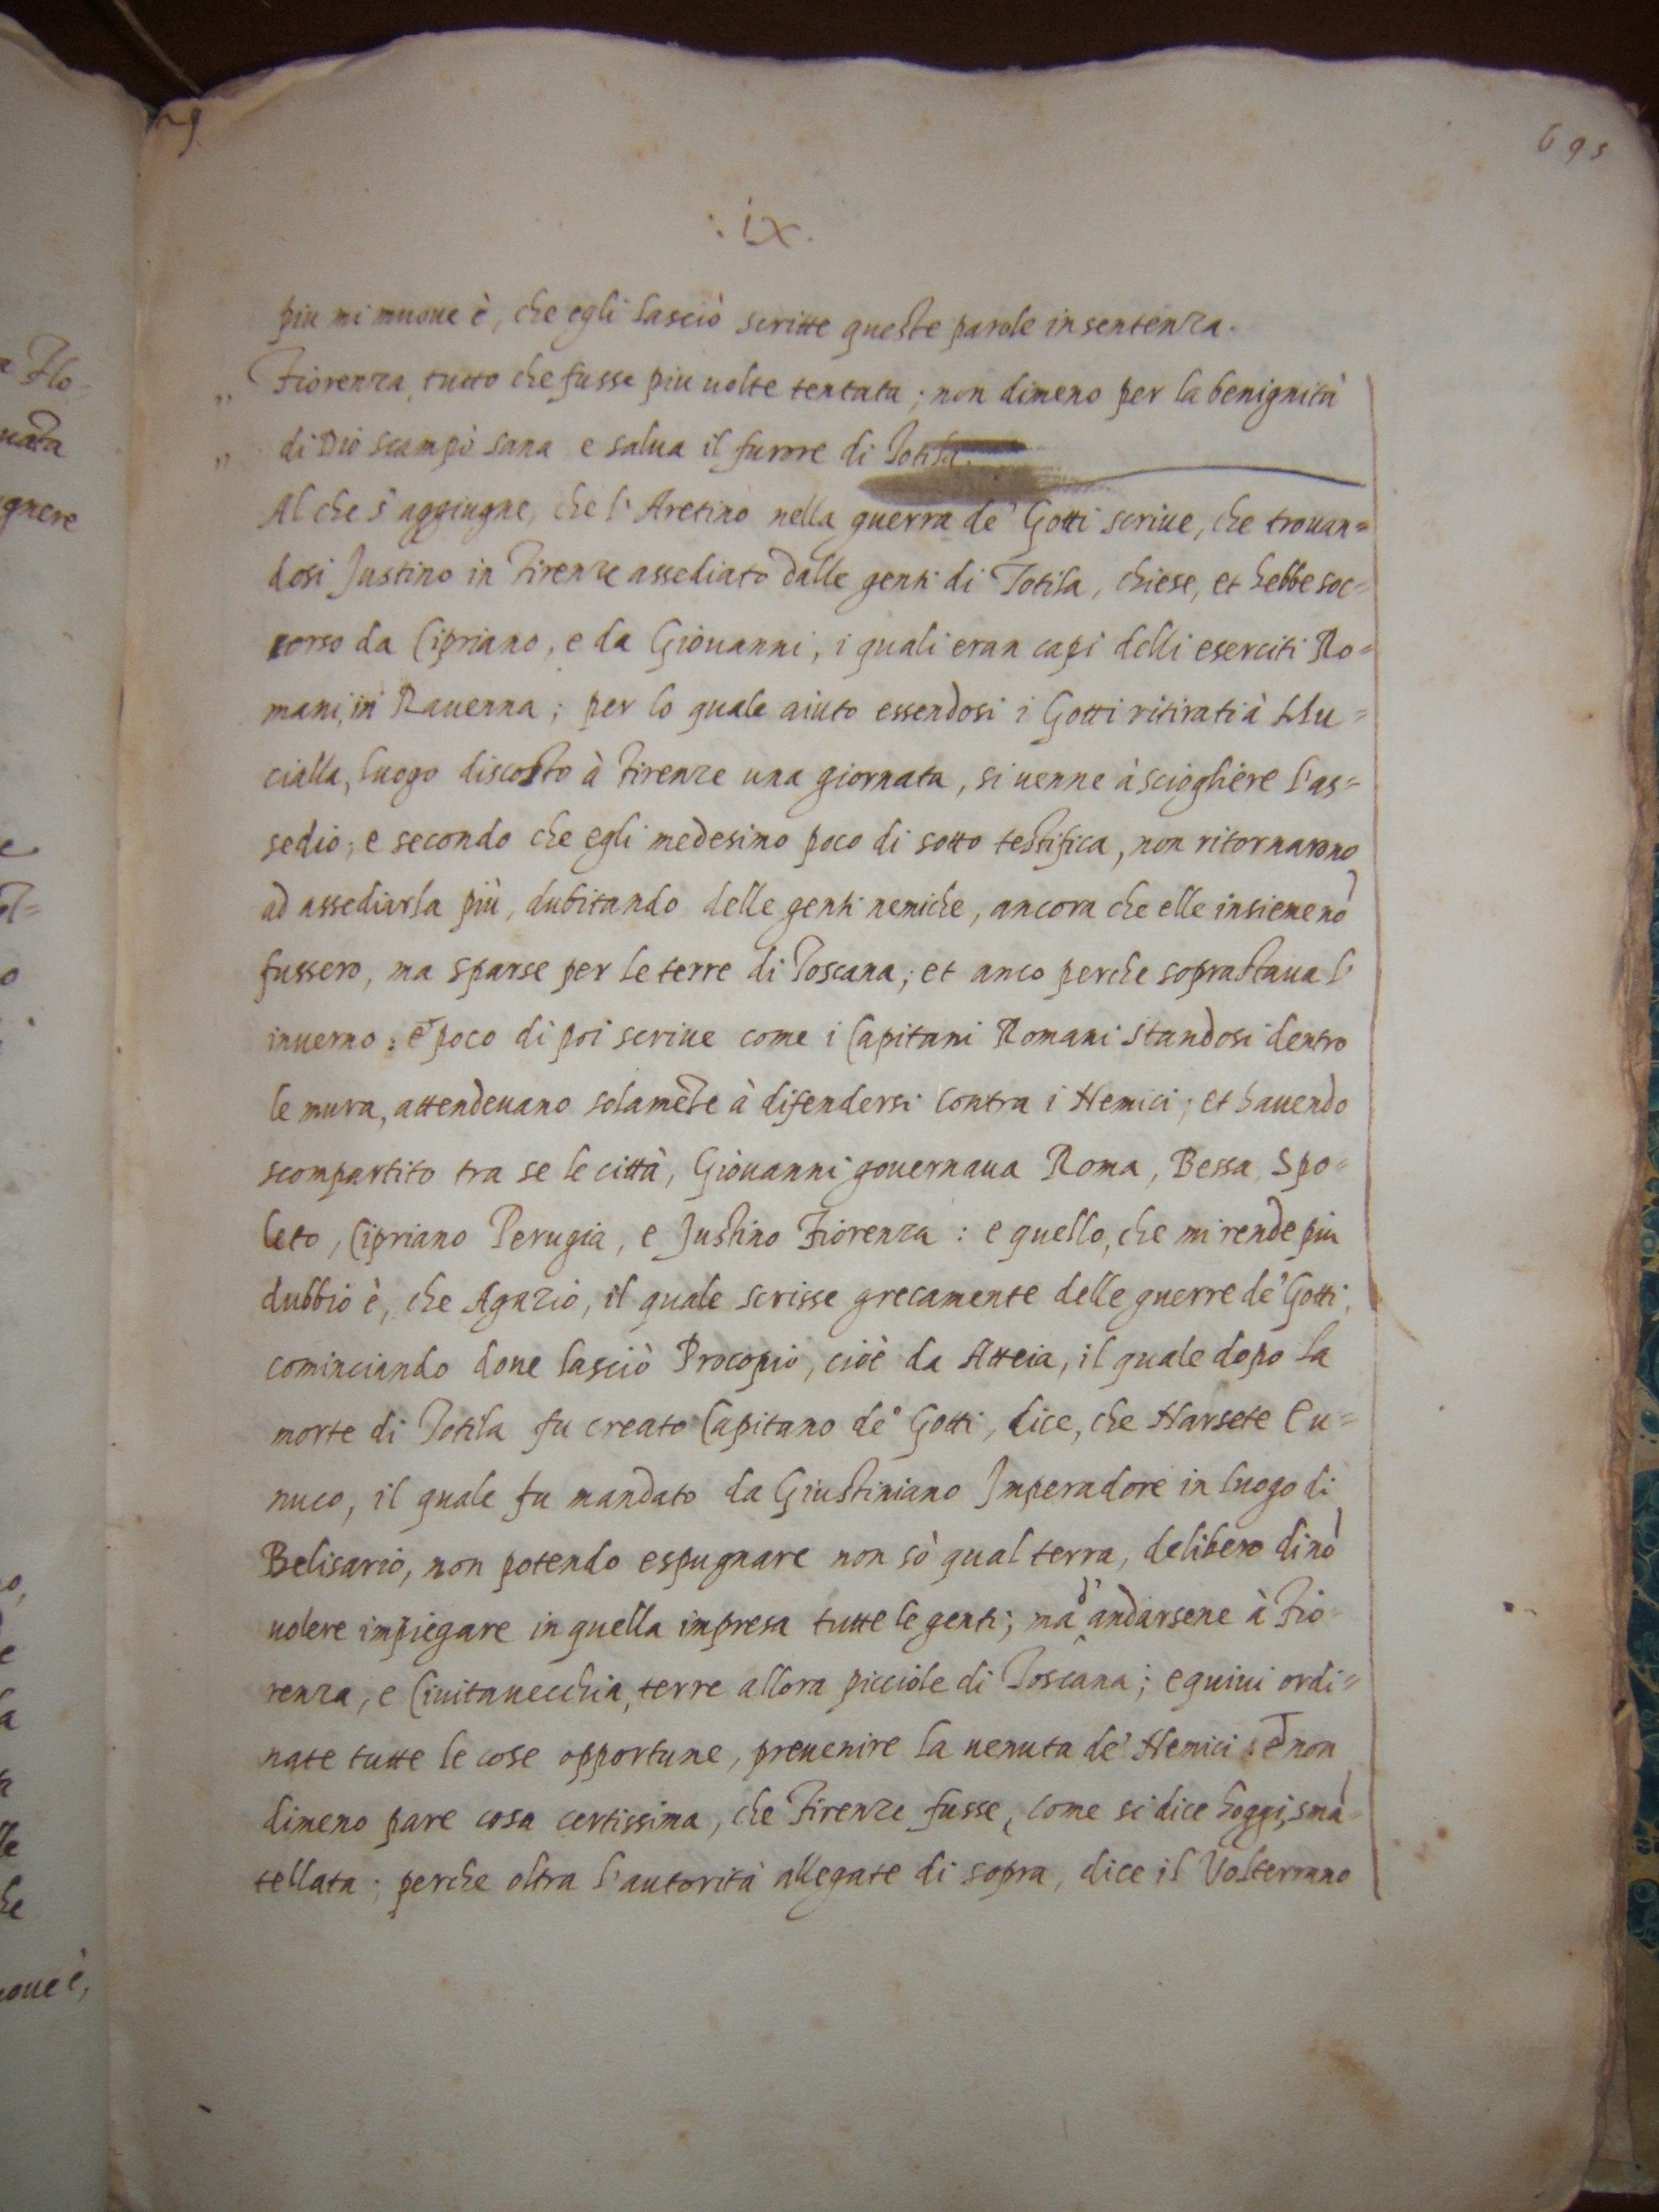 695
.ix.
piu mi muoue è, che egli lasciò scritte queste parole in sentenza.
„ Fiorenza, tutto che fusse piu uolte tentata; non dimeno per la benignità
„ di Dio scampò sana e salua il furore di Totila.
Al che s'aggiugne, che l'Aretino nella guerra de' Gotti scriue, che trouan=
dosi Justino in Firenze assediato dalle genti di Totila, chiese, et hebbe soc=
corso da Cipriano, e da Giouanni, i quali eran capi delli eserciti Ro=
mani, in Rauenna; per lo quale aiuto essendosi i Gotti ritirati à Mu=
cialla, luogo discosto à Firenze una giornata, si uenne à sciogliere l'as=
sedio; e secondo che egli medesimo poco di sotto testifica, non ritornarono
ad assediarla più, dubitando delle genti nemiche, ancora che elle insieme nō
fussero, ma sparse per le terre di Toscana; et anco perche soprastaua l'
inuerno: e poco di poi scriue come i Capitani Romani standosi dentro
le mura, attendeuano solamēte à difendersi contra i Nemici; et hauendo
scompartito tra se le città, Giouanni gouernaua Roma, Bessa, Spo=
leto, Cipriano Perugia, e Justino Fiorenza: e quello, che mi rende piu
dubbio è, che Agazio, il quale scrisse grecamente delle guerre de' Gotti,
cominciando doue lasciò Procopio, cioè da Atteia, il quale dopo la
morte di Totila fu creato Capitano de' Gotti, dice, che Narsete Eu=
nuco, il quale fu mandato da Giustiniano Imperadore in luogo di
Belisario, non potendo espugnare non sò qual terra, delibero di nō
uolere impiegare in quella impresa tutte le genti; ma d'andarsene à Fio=
renza, e Ciuitauecchia, terre allora picciole di Toscana; e quiui ordi=
nate tutte le cose opportune, preuenire la uenuta de' Nemici: e non
dimeno pare cosa certissima, che Firenze fusse, come si dice hoggi, smā=
tellata; perche oltra l'autorità allegate di sopra, dice il Volterrano